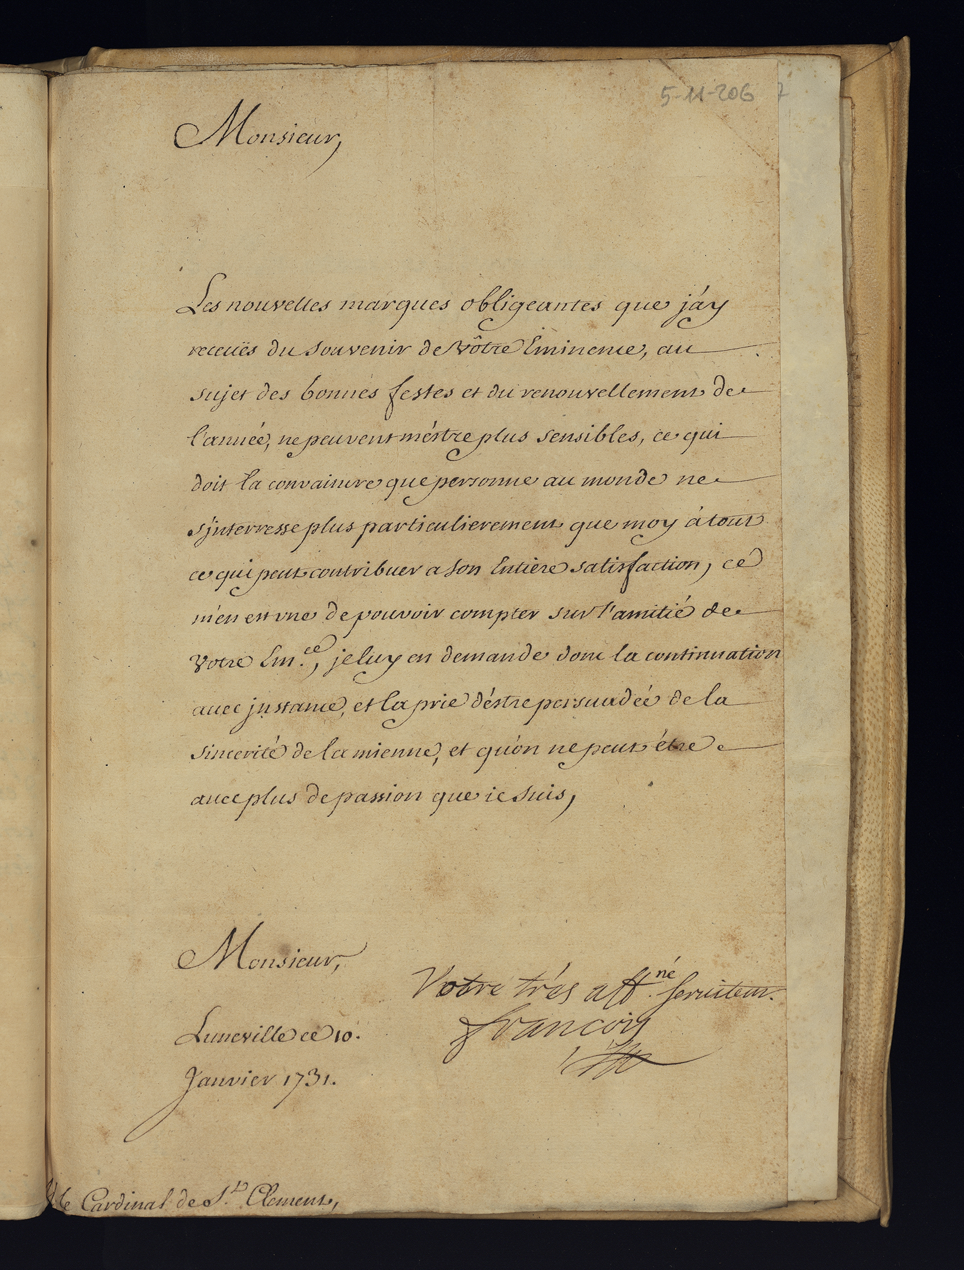 5-11-206 7
Monsieur,
Les nouvelles marques obligeantes que j'ay
receuës du souvenir de Vôtre Eminence, au
sujet des bonnes festes et du renouvellement de
l'année, ne peuvent m'éstre plus sensibles, ce qui
doit la convaincre que personne au monde ne
s'jnterresse plus particulierement que moy à tout
ce qui peut contribuer a son Entière satisfaction, ce
m'en est vne de pouvoir compter sur l'amitié de
Votre Em.ce, je luy en demande donc la continuation
auec jnstance, et la prie d'éstre persuadée de la
sincerité de la mienne, et qu'on ne peut être
auec plus de passion que ie suis,
Monsieur,
Votre trés aff.né seruiteur.
francois
Luneville ce 10.
Janvier 1731.
le Cardinal de S.t Clement,